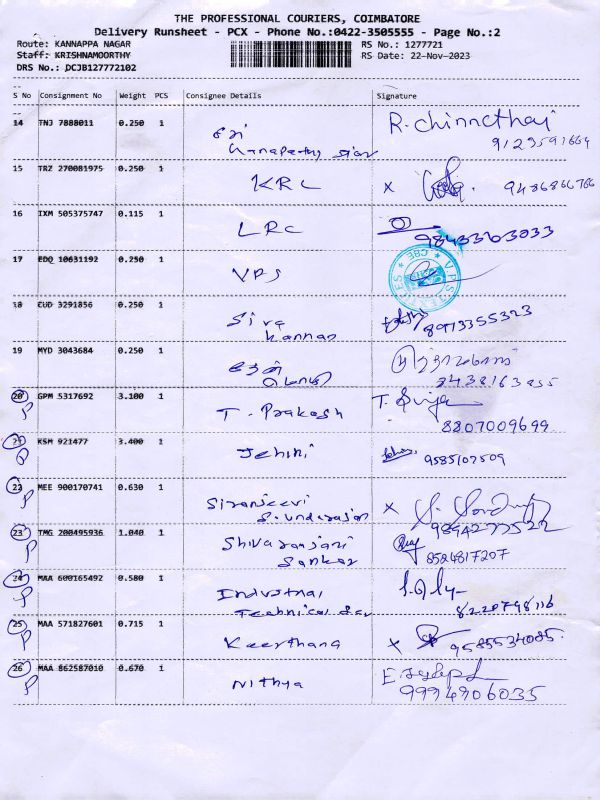 THE PROFESSIONAL COURIERS, COIMBATORE
Delivery Runsheet - PCX - Phone No.:0422-3505555 - Page No.:2
Route: KANNAPPA NAGAR
Staff: KRISHNAMOORTHY
RS No.: 1277721
RS Date: 22-Nov-2023
DRS No.: DCJB127772102
S No Consignment No Weight PCS Consignee Details Signature
14 TNJ 7888011 0.250 1 R. Chinnathai
9129591664
15 TRZ 270081975 0.250 1 KRC x 9486866766
16 IXM 505375747 0.115 1 LRC 9843363033
17 EDQ 10631192 0.250 1 VPS
18 CUD 3291856 0.250 1 Siva
Kannan 8973355323
19 MYD 3043684 0.250 1
20 GPM 5317692 3.100 1 T. Prakash
P 8807009699
21 KSM 921477 3.400 1 Jehini 9585107509
P
22 MEE 900170741 0.630 1 Siranjeevi x
P Sunderajan 9894277522
23 TMG 200495936 1.040 1 Shivaranjani
P Sankar 8524817207
24 MAA 600165492 0.580 1 Industrial
P Technical Ser 8220798116
25 MAA 571827601 0.715 1 Keerthana x 9585534085.
P
26 MAA 862587010 0.670 1 Nithya
P 9994906035